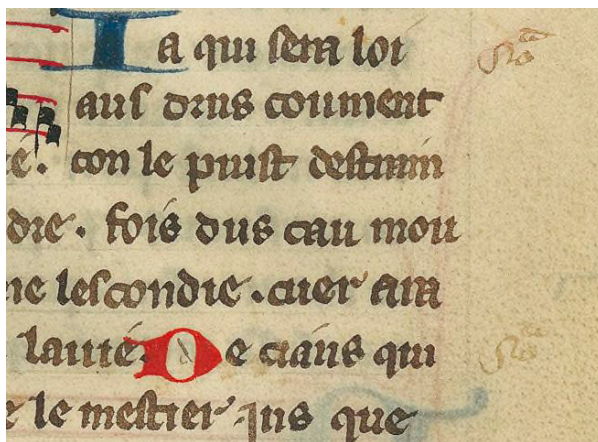 Ia qui sera loi
aus drus coument
con le puist destrain
dre. fois dus cau mou
ne lescondie. cuer ara
lauté. De ciaus qui
le mestier. Ius que